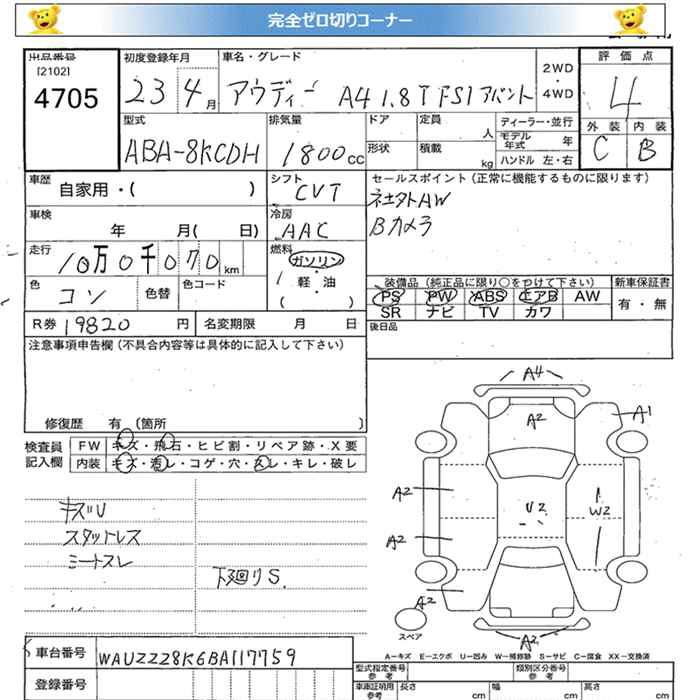 完全ゼロ切りコーナー
出品番号
[2102]
4705
初度登録年月
23 4 月
車名・グレード
アウディー A4 1.8T FSI アバント
2WD
・
4WD
評価点
4
外装 内装
C B
型式
ABA-8KCDH
排気量
1800 cc
ドア 定員 人
形状 積載 kg
ディーラー・並行
モデル年式 年
ハンドル 左・右
車歴
自家用・( )
シフト
CVT
セールスポイント(正常に機能するものに限ります)
AW
Bカメラ
車検
年 月( 日)
冷房
AAC
走行
10万0千070 km
燃料
ガソリン
軽・油
( )
色 色替 色コード
コン
装備品(純正品に限り○をつけて下さい)
PS PW ABS エアB AW
SR ナビ TV カワ
新車保証書
有・無
R券 19820 円 名変期限 月 日
後日品
注意事項申告欄(不具合内容等は具体的に記入して下さい)
修復歴 有 (箇所 )
検査員記入欄
FW キズ・飛石・ヒビ割・リペア跡・X要
内装 キズ・汚レ・コゲ・穴・スレ・キレ・破レ
キズU
スタットレス
ミートスレ
下廻りS.
A4
A2
A1
A2
U2
W2
A2
A2
A2
スペア
A-キズ E-エクボ U-凹み W-補修跡 S-サビ C-腐食 XX-交換済
車台番号 WAUZZZ8K6BA117759
登録番号
型式指定番号 類別区分番号
車庫証明用参考 長さ cm 幅 cm 高さ cm